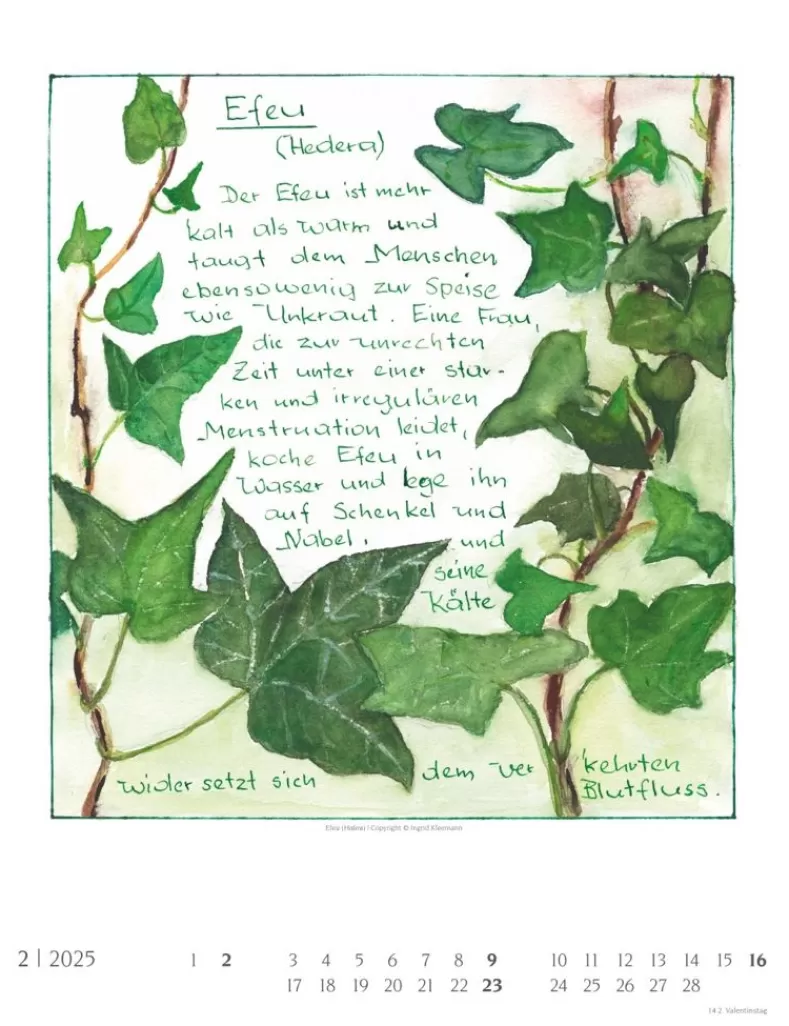 Efeu
(Hedera)
Der Efeu ist mehr
kalt als warm und
taugt dem Menschen
ebensowenig zur Speise
wie Unkraut. Eine Frau,
die zur unrechten
Zeit unter einer star-
ken und irregulären
Menstruation leidet,
koche Efeu in
Wasser und lege ihn
auf Schenkel und
Nabel, und
seine
Kälte
widersetzt sich dem ver kehrten
Blutfluss.
Efeu (Hedera) | Copyright © Ingrid Kleemann
2 | 2025 1 2 3 4 5 6 7 8 9 10 11 12 13 14 15 16
17 18 19 20 21 22 23 24 25 26 27 28
14.2. Valentinstag